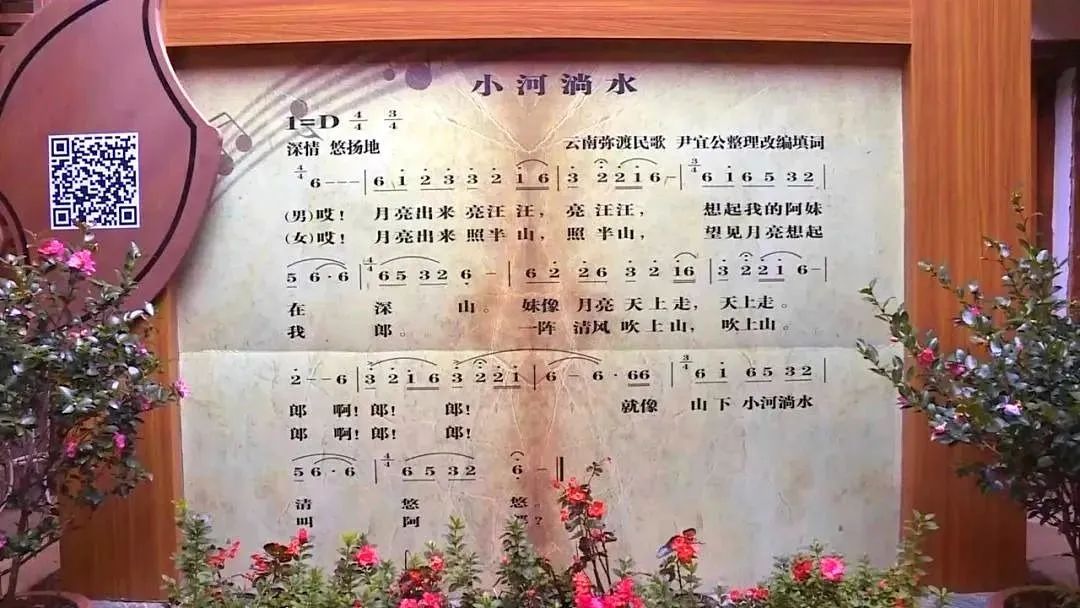 小河淌水
1=D 4/4 3/4
深情 悠扬地 云南弥渡民歌 尹宜公整理改编填词
4/4 6--- | 6 1 2 3 3 2 1 6 | 3 2 2 1 6- | 3/4 6 1 6 5 3 2 |
(男)哎! 月亮出来 亮汪 汪, 亮 汪汪, 想起我的阿妹
(女)哎! 月亮出来 照半 山, 照 半山, 望见月亮想起
5 6·6 | 4/4 6 5 3 2 6 - | 6 2 2 6 3 2 1 6 | 3 2 2 1 6- |
在 深 山。 妹像 月亮 天上走, 天上走。
我 郎。 一阵 清风 吹上山, 吹上山。
2--6 | 3 2 1 6 3 2 2 1 | 6 - 6·66 | 3/4 6 1 6 5 3 2 |
郎 啊! 郎! 郎! 就像 山下 小河淌水
郎 啊! 郎! 郎!
5 6·6 | 4/4 6 5 3 2 6 - ||
清 悠 悠。
叫 阿 ?